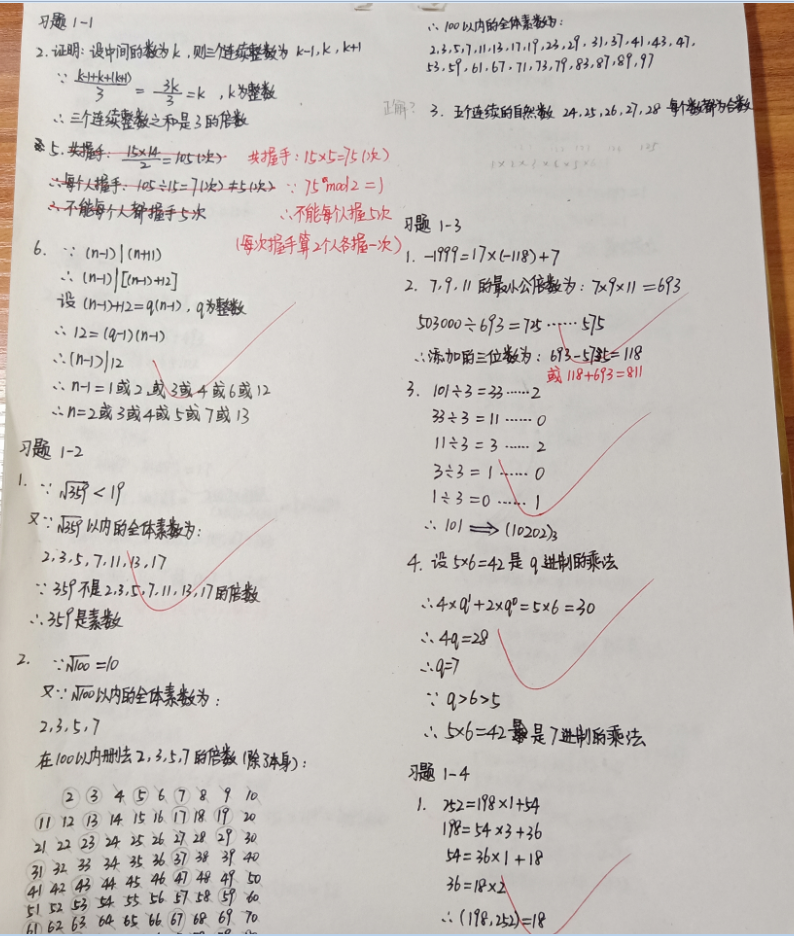 习题 1-1
2. 证明: 设中间的数为k, 则三个连续整数为 k-1, k, k+1
∵ (k-1+k+(k+1))/3 = 3k/3 = k , k为整数
∴ 三个连续整数之和是3的倍数
5. 共握手: 15×14/2 = 105(次) 共握手: 15×5=75(次)
∴每个人握手: 105÷15=7(次)≠5(次) ∵ 75 mod 2 = 1
∴ 不能每个人都握手5次 ∴不能每个人握5次
(每次握手算2个人各握一次)
6. ∵ (n-1) | (n+11)
∴ (n-1) | [(n-1)+12]
设 (n-1)+12=q(n-1), q为整数
∴ 12=(q-1)(n-1)
∴(n-1)|12
∴ n-1=1或2或3或4或6或12
∴n=2或3或4或5或7或13
习题 1-2
1. ∵ √359 < 19
又∵ √359以内的全体素数为:
2,3,5,7,11,13,17
∵ 359不是2,3,5,7,11,13,17的倍数
∴ 359是素数
2. ∵√100=10
又∵√100以内的全体素数为:
2,3,5,7
在100以内删去2,3,5,7的倍数(除了本身):
2 3 4 5 6 7 8 9 10
11 12 13 14 15 16 17 18 19 20
21 22 23 24 25 26 27 28 29 30
31 32 33 34 35 36 37 38 39 40
41 42 43 44 45 46 47 48 49 50
51 52 53 54 55 56 57 58 59 60
61 62 63 64 65 66 67 68 69 70
∴ 100以内的全体素数为:
2,3,5,7,11,13,17,19,23,29,31,37,41,43,47,
53,59,61,67,71,73,79,83,87,89,97
正解? 3. 五个连续的自然数 24,25,26,27,28 每个数都为合数
习题 1-3
1. -1999=17×(-118)+7
2. 7,9,11的最小公倍数为: 7×9×11=693
503000÷693=725……575
∴添加的三位数为: 693-575=118
或 118+693=811
3. 101÷3=33……2
33÷3=11……0
11÷3=3……2
3÷3=1……0
1÷3=0……1
∴ 101 ⟹ (10202)₃
4. 设5×6=42是q进制的乘法
∴4×q¹+2×q⁰=5×6=30
∴4q=28
∴q=7
∵ q>6>5
∴ 5×6=42是7进制的乘法
习题 1-4
1. 252=198×1+54
198=54×3+36
54=36×1+18
36=18×2
∴(198,252)=18